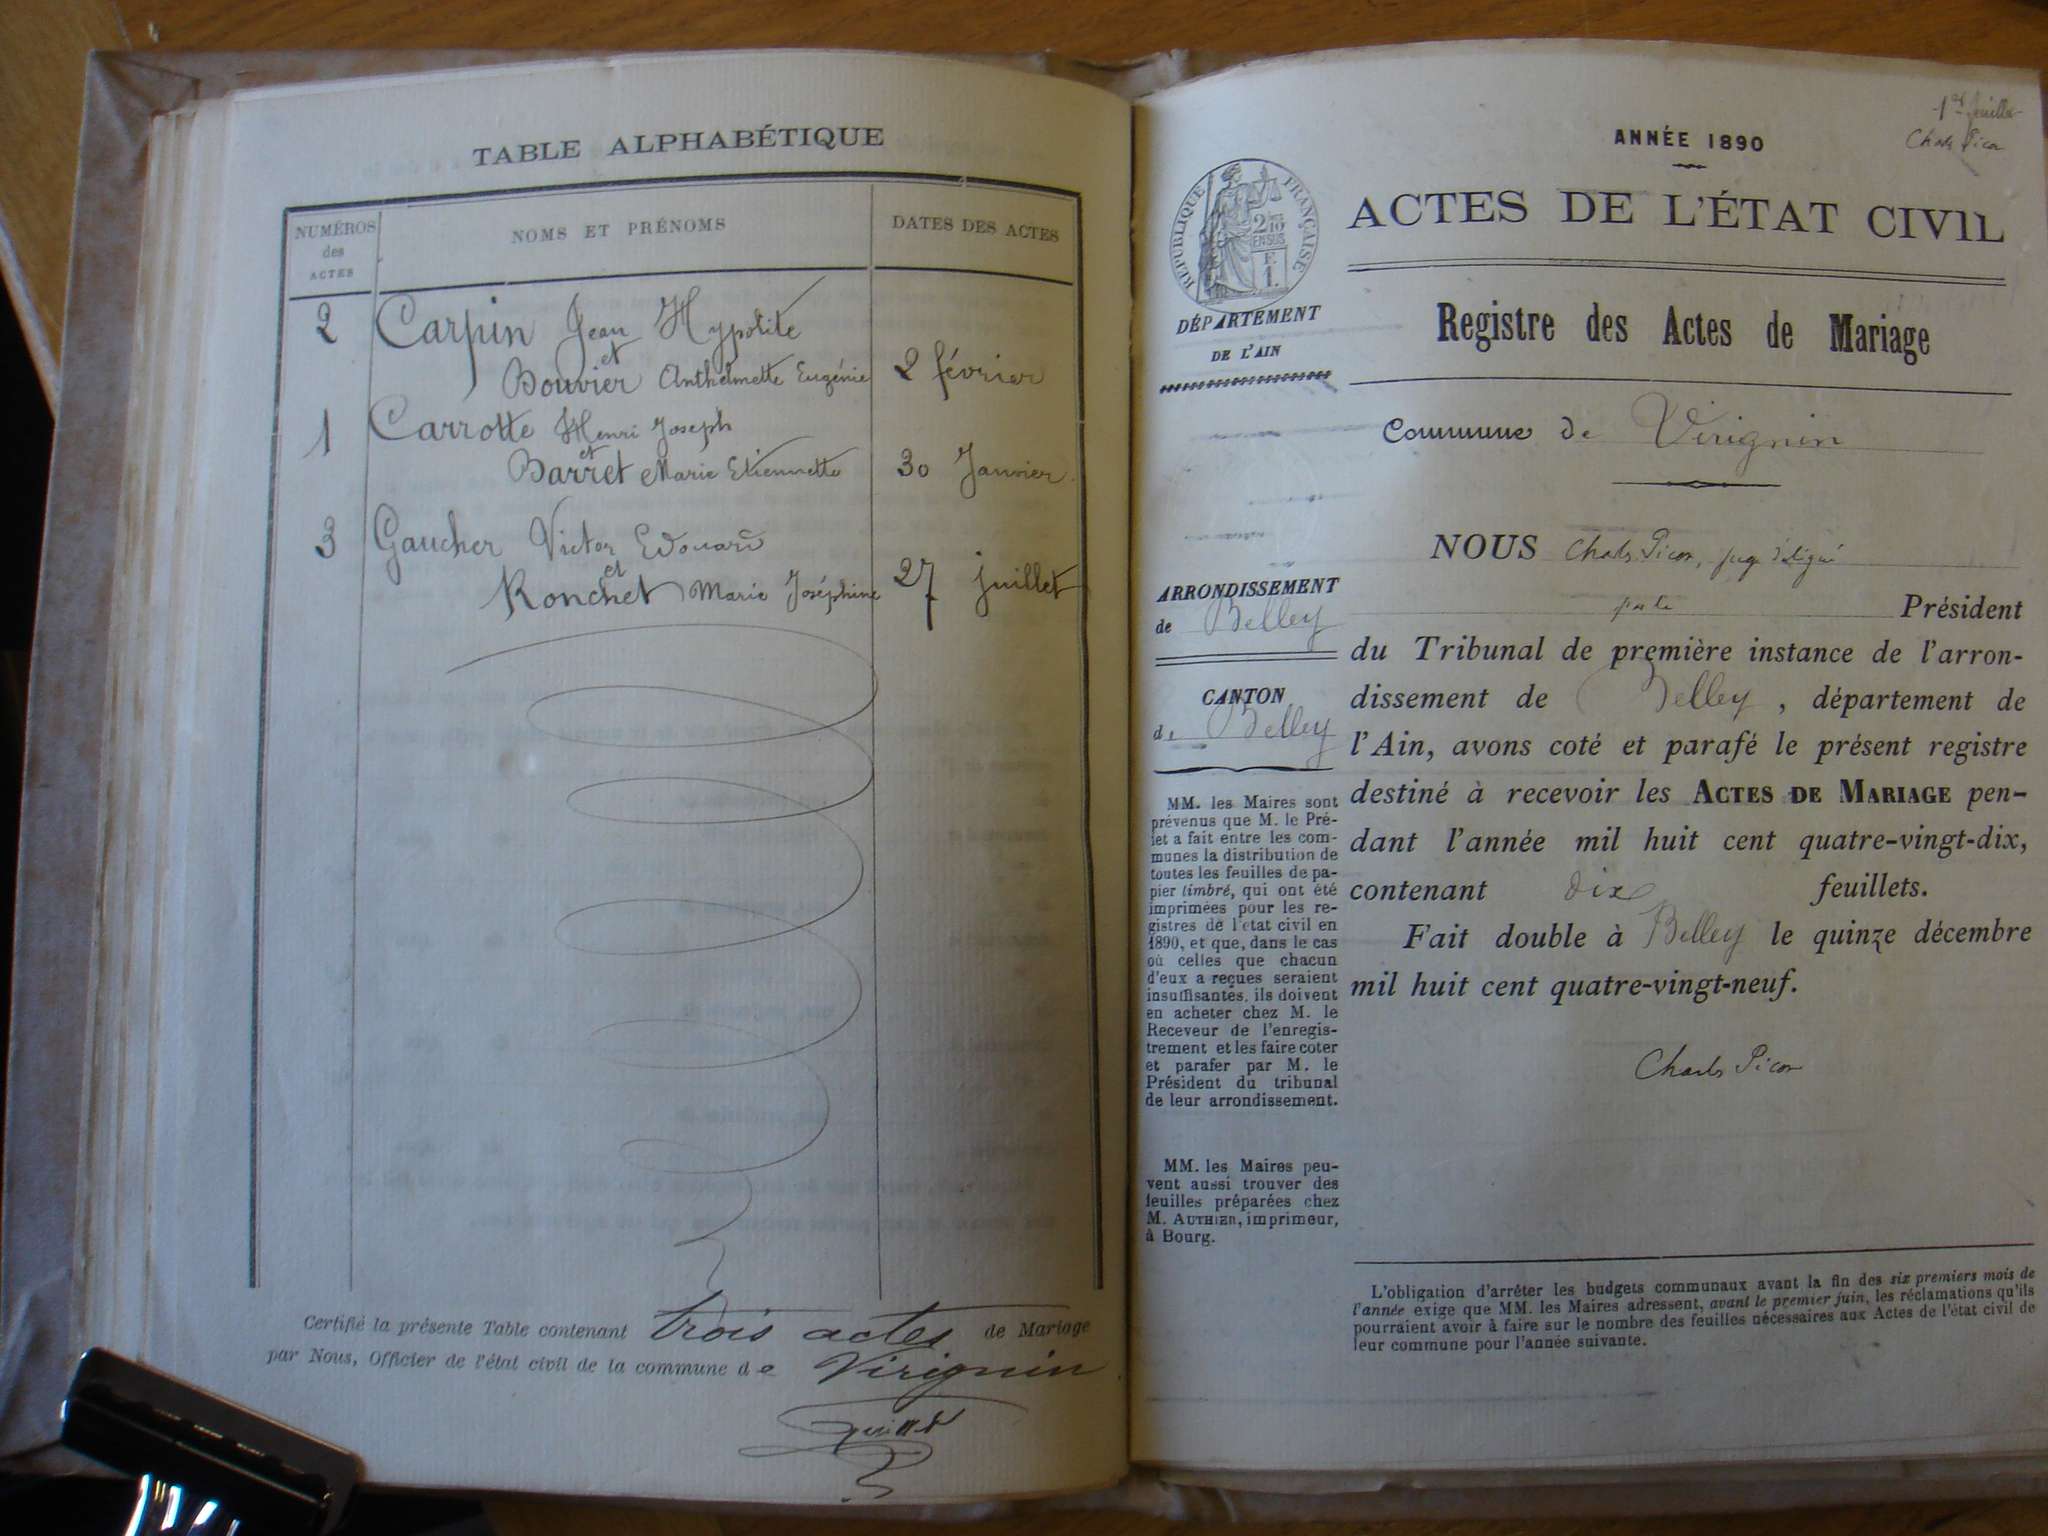 TABLE ALPHABÉTIQUE
NUMÉROS
des
ACTES
NOMS ET PRÉNOMS
DATES DES ACTES
2 Carpin Jean Hypolite
et
Bouvier Anthelmette Eugénie 2 février
1 Carrotte Henri Joseph
et
Barret Marie Etiennette 30 Janvier
3 Gaucher Victor Edouard
et
Ronchet Marie Joséphine 27 juillet
Certifié la présente Table contenant trois actes de Mariage
par Nous, Officier de l'état civil de la commune de Virignin
1er feuillet
Charles Picon
ANNÉE 1890
ACTES DE L'ÉTAT CIVIL
RÉPUBLIQUE FRANÇAISE
2/10
EN SUS
F.
1.
DÉPARTEMENT
DE L'AIN
Registre des Actes de Mariage
Commune de Virignin
ARRONDISSEMENT
de Belley
CANTON
de Belley
MM. les Maires sont
prévenus que M. le Pré-
fet a fait entre les com-
munes la distribution de
toutes les feuilles de pa-
pier timbré, qui ont été
imprimées pour les re-
gistres de l'état civil en
1890, et que, dans le cas
où celles que chacun
d'eux a reçues seraient
insuffisantes, ils doivent
en acheter chez M. le
Receveur de l'enregis-
trement et les faire coter
et parafer par M. le
Président du tribunal
de leur arrondissement.
MM. les Maires peu-
vent aussi trouver des
feuilles préparées chez
M. AUTHIER, imprimeur,
à Bourg.
NOUS Charles Picon, juge délégué
par le Président
du Tribunal de première instance de l'arron-
dissement de Belley, département de
l'Ain, avons coté et parafé le présent registre
destiné à recevoir les ACTES DE MARIAGE pen-
dant l'année mil huit cent quatre-vingt-dix,
contenant dix feuillets.
Fait double à Belley le quinze décembre
mil huit cent quatre-vingt-neuf.
Charles Picon
L'obligation d'arrêter les budgets communaux avant la fin des six premiers mois de
l'année exige que MM. les Maires adressent, avant le premier juin, les réclamations qu'ils
pourraient avoir à faire sur le nombre des feuilles nécessaires aux Actes de l'état civil de
leur commune pour l'année suivante.